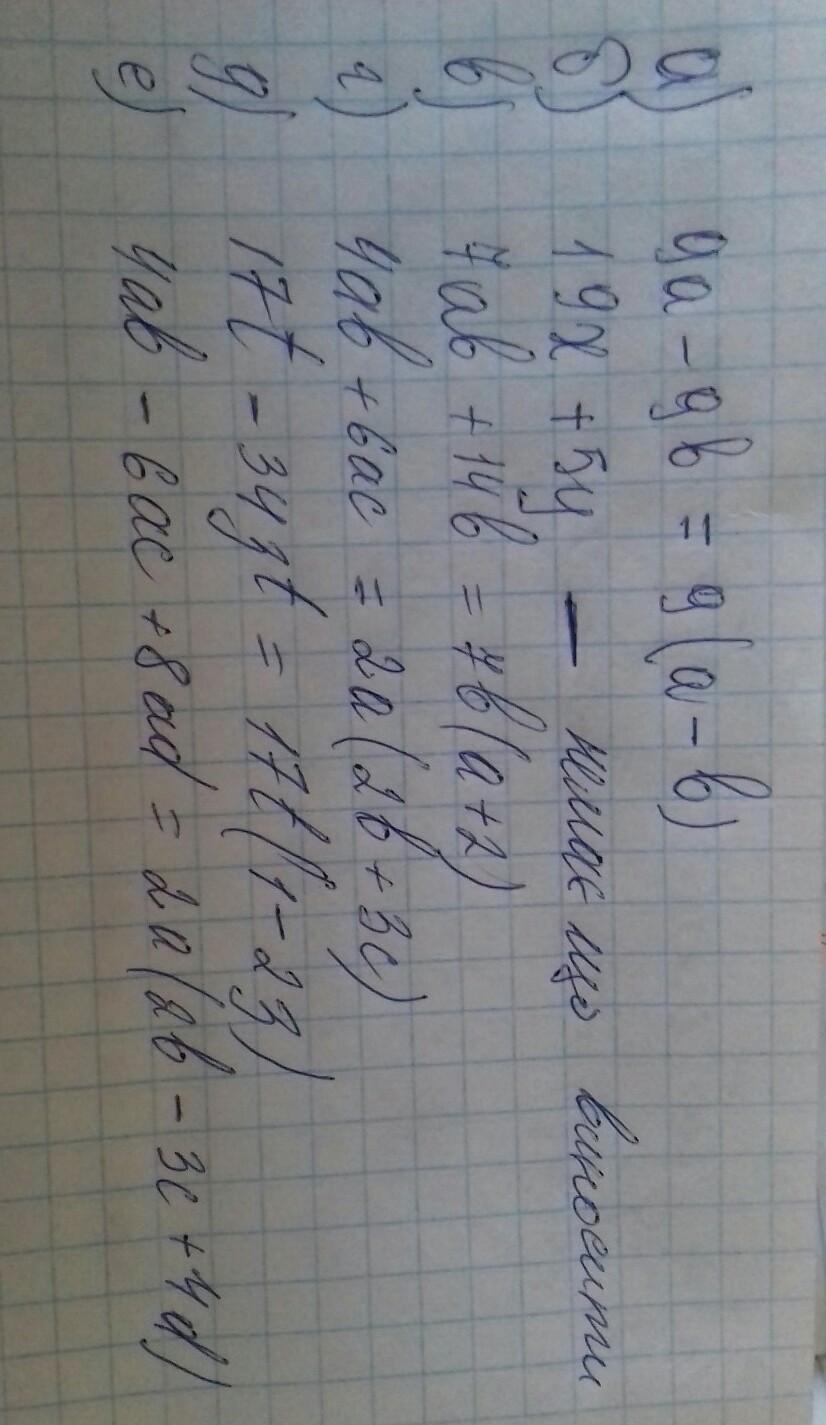 а) 9a - 9b = 9(a - b)
б) 19x + 5y — немає що виносити
в) 7ab + 14b = 7b(a + 2)
г) 4ab + 6ac = 2a(2b + 3c)
д) 17t - 34gt = 17t(1 - 2g)
е) 4ab - 6ac + 8ad = 2a(2b - 3c + 4d)